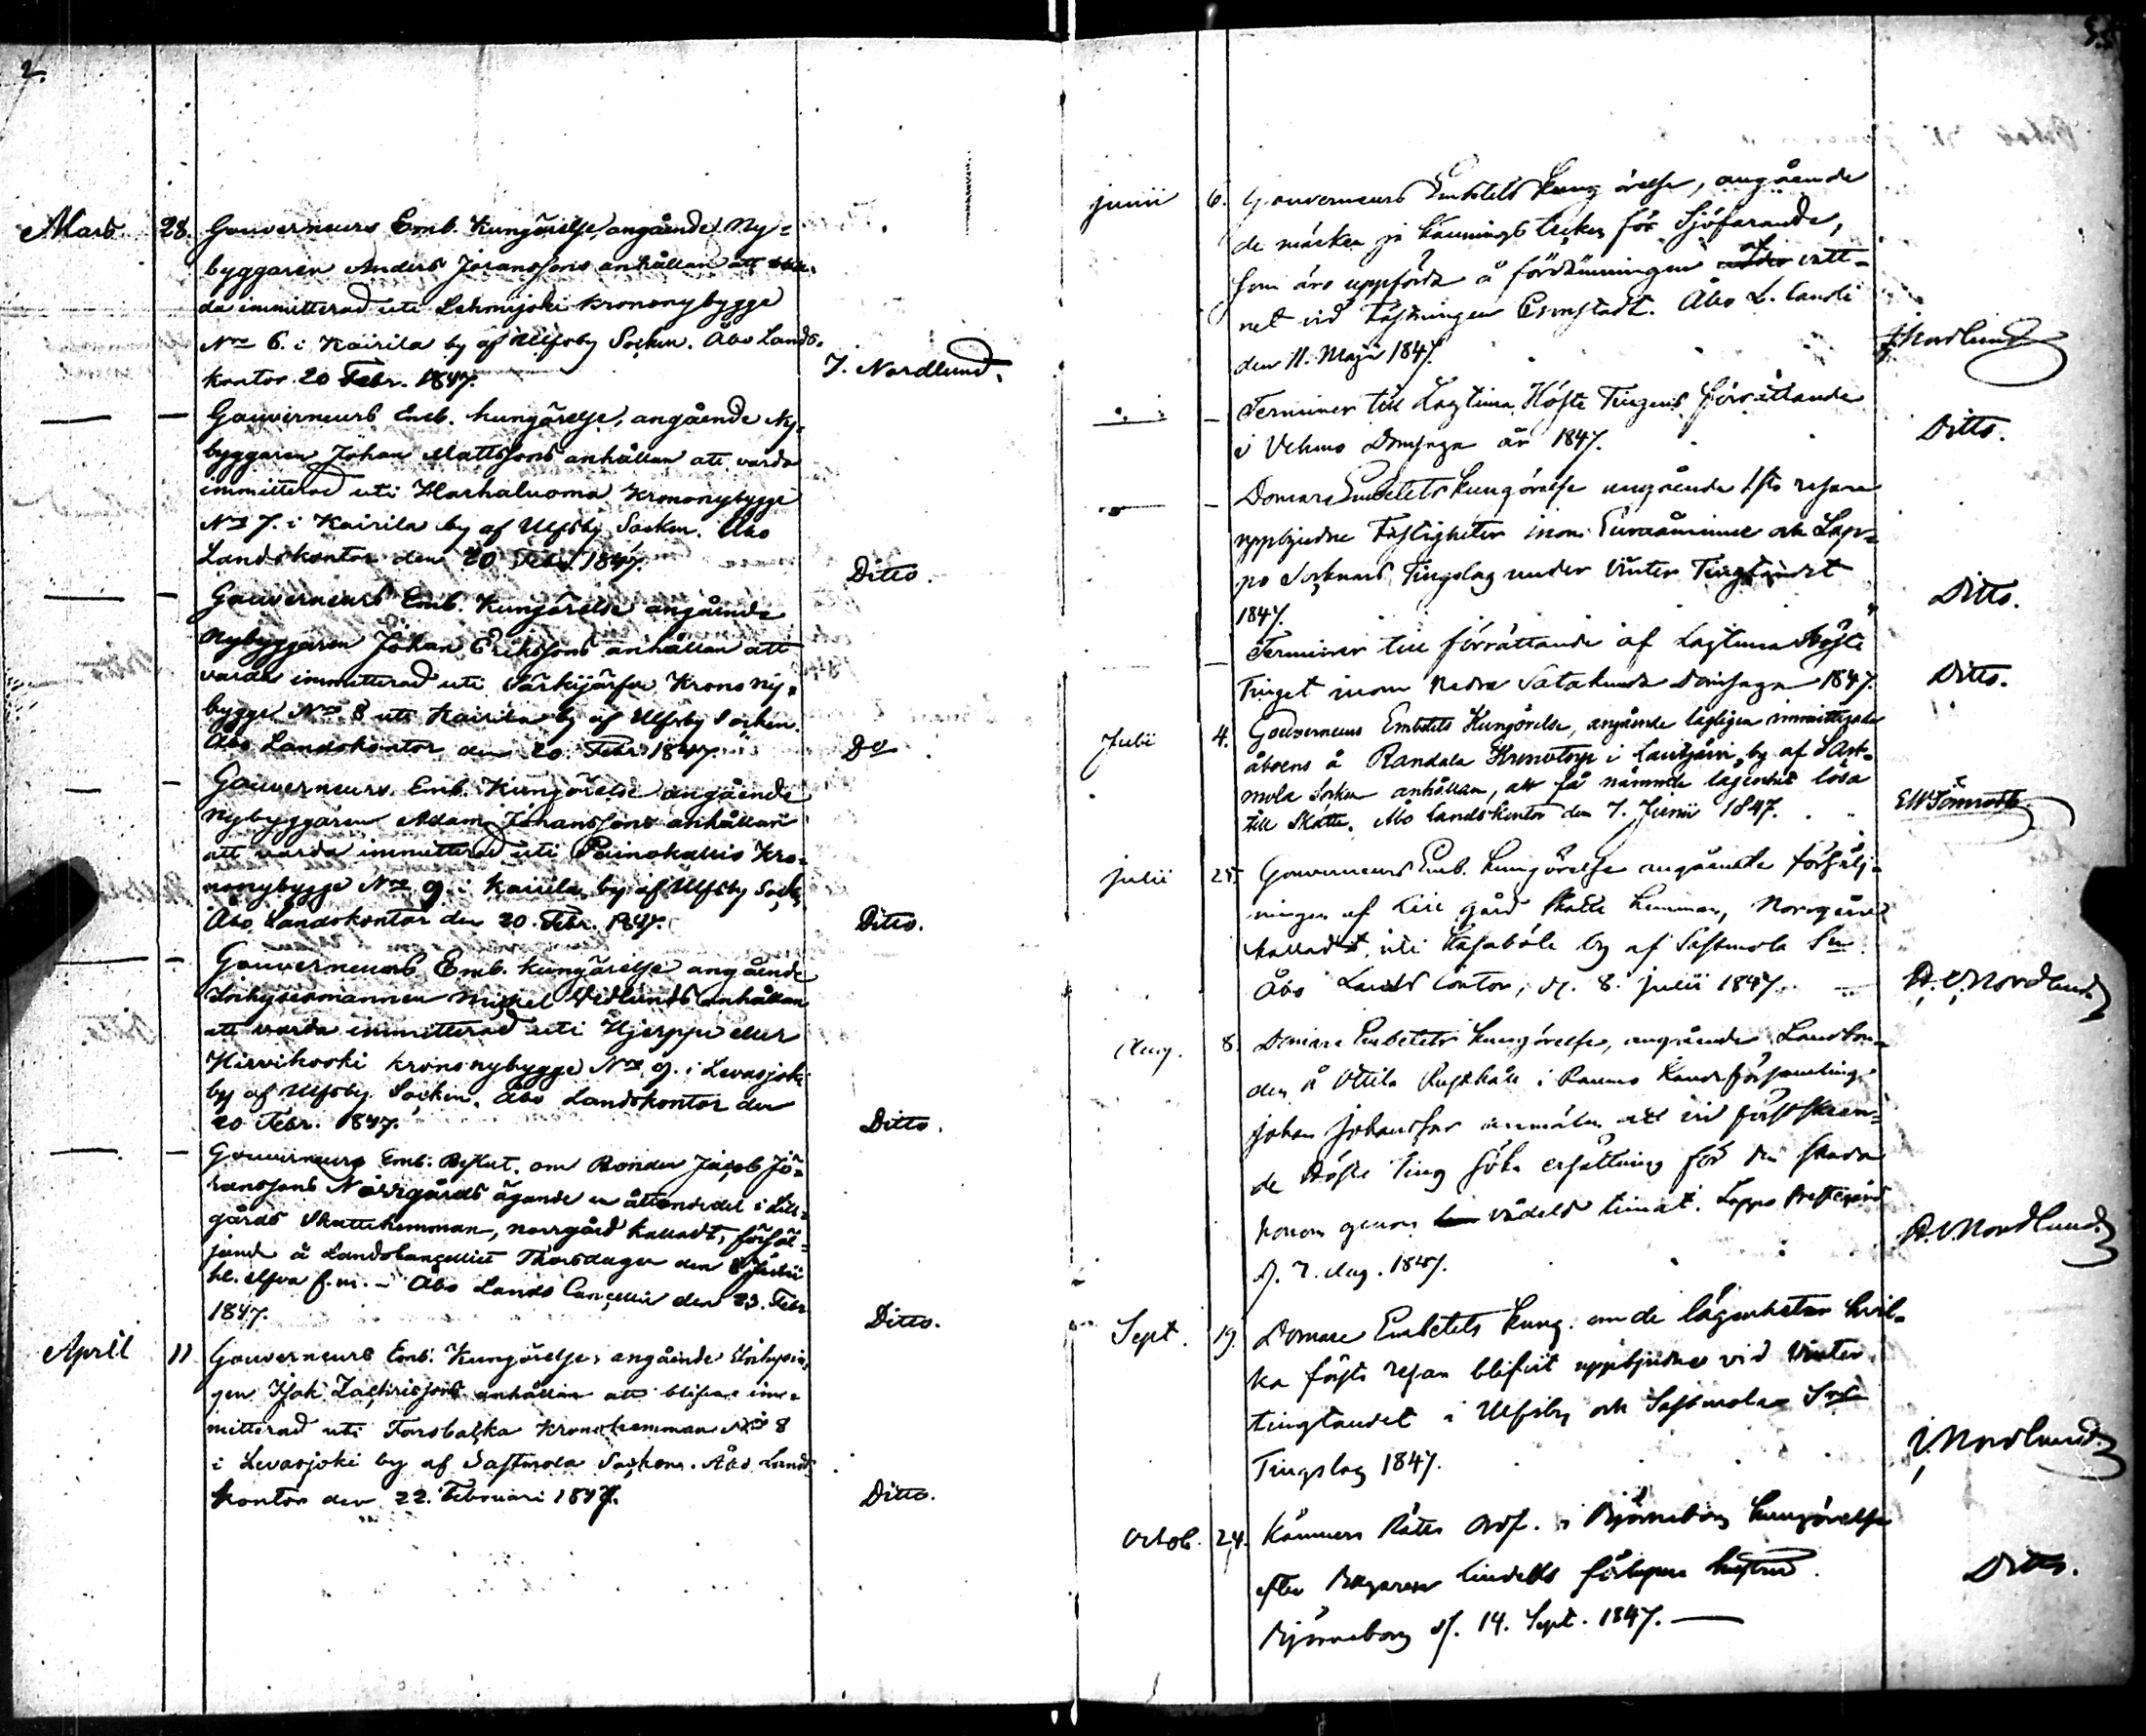 2.
Mars 28. Gouverneurs Emb. Kungörelse, angående Ny-
byggaren Anders Joransons anhållan att
da immitterad uti Lehmijoki Krononybygge
Nro 6. i Kairila by af Ulfsby Socken. Åbo Lands-
kontor 20 Febr. 1847. J. Nordlund.
— — Gouverneurs Emb. kungörelse, angående Ny-
byggaren Johan Mattssons anhållan att varda
immitterad uti Harhaluoma Krononybygge
Nro 7. i Kairila by af Ulfsby Socken. Åbo
Landskontor den 20 Febr. 1847. Ditto.
— — Gouverneurs Emb. Kungörelse angående
Nybyggaren Johan Erikssons anhållan att
varda immitterad uti Särkijärfvi Krono Ny-
bygge Nro 8 uti Kairila by af Ulfsby Socken.
Åbo Landskontor den 20. Febr. 1847. Do
— — Gouverneurs. Emb. Kungörelse angående
Nybyggaren Adam Johanssons anhållan
att varda immitterad uti Painokallio Kro-
nonybygge Nro 9. i Kairila by af Ulfsby Sock.
Åbo Landskontor den 20. Febr. 1847. Ditto.
— — Gouverneurs Emb. kungörelse angående
Inhysesmannen Mickel Vidlunds anhållan
att varda immitterad uti Hjerppe eller
Hirvikoski krononybygge Nro 9. i Levasjoki
by af Ulfsby Socken. Åbo Landskontor den
20 Febr. 1847. Ditto.
— — Gouverneurs Emb: Beslut. om Bonden Jacob Jö-
ranssons Norrgårds ägande en åttondedel i Lill-
gårds Skattehemman, norrgård kalladt, försäl-
jande å Landskancelliet Thorsdagen den 8 Julii
kl. elfva f.m. - Åbo Lands Cancellie den 23. Febr.
1847. Ditto.
April 11 Gouverneurs Emb. Kungörelse, angående
gen Isak Zachrissons anhållan att blifva im-
mitterad uti Forsbacka Kronohemman Nro 8
i Levasjoki by af Sastmola Sockens. Åbo Lands
kontor den 22. Februari 1847. Ditto.
junii 6. Gouverneurs Embetets Kungörelse, angående
de märken je kännings tecken för Sjöfarande,
som äro uppförda å fördämningen vatt-
net vid Fästningen Cronstadt. Åbo L. Cancli
den 11. Maji 1847. J Nordlund
— — Terminer till Lagtima Höste Tingens förrättande
i Vehmo Domsaga år 1847. Ditto.
— — Domare Embetets kungörelse angående 1sta resan
uppbjudne Fastigheter inom Euraåminne och Lap-
po Socknars Tingslag under Vinter Tingtandet
1847. Ditto.
— Terminer till förrättande af Lagtima Höste
Tinget inom Nedra Satakunda Domsaga 1847. Ditto.
Julii 4. Gouverneurs Embetets Kungörelse, angående lagligen immitterade
åboens å Randala Kronotorp i Lautjärvi by af Sast-
mola Socken anhållan, att få nämnde lägenhet lösa
till Skatte. Åbo Landskontor den 7. Junii 1847.
julii 25. Gouverneurs Emb. kungörelse angående försälj-
ningen af Lill gård Skatte hemman, Norrgård
kalladt, uti Kasaböle by af Sastmola Sn.
Åbo Lands Contor, d. 8. julii 1847. Nordlund
Aug. 8. Domare Embetets kungörelse, angående Landbon-
den å Ottila Rusthåll i Raumo Landsförsamling
Johan Johansson anmälan att vid först skeen-
de Höste ting söka ersättning för den skada
honom genom vådeld timat. Lappo Prestegård
d. 7. Aug. 1847. Nordlund
Sept. 19. Domare Embetets kung. om de lägenheter hvil-
ka första resan blifvit uppbjudne vid Vinter
tingtandet i Ulfsby och Sastmola Snr
Tingslag 1847. Nordlund
Octob. 24. Kämners Rätts Ordf. i Björneborg kungörelse
efter Bagaren Lindells förlupne hustru. Ditto.
Björneborg d. 14. Sept. 1847. —